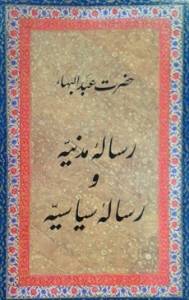 حضرت عبدالبهاء
رسالهٔ مدنیّه
و
رسالهٔ سیاسیّه